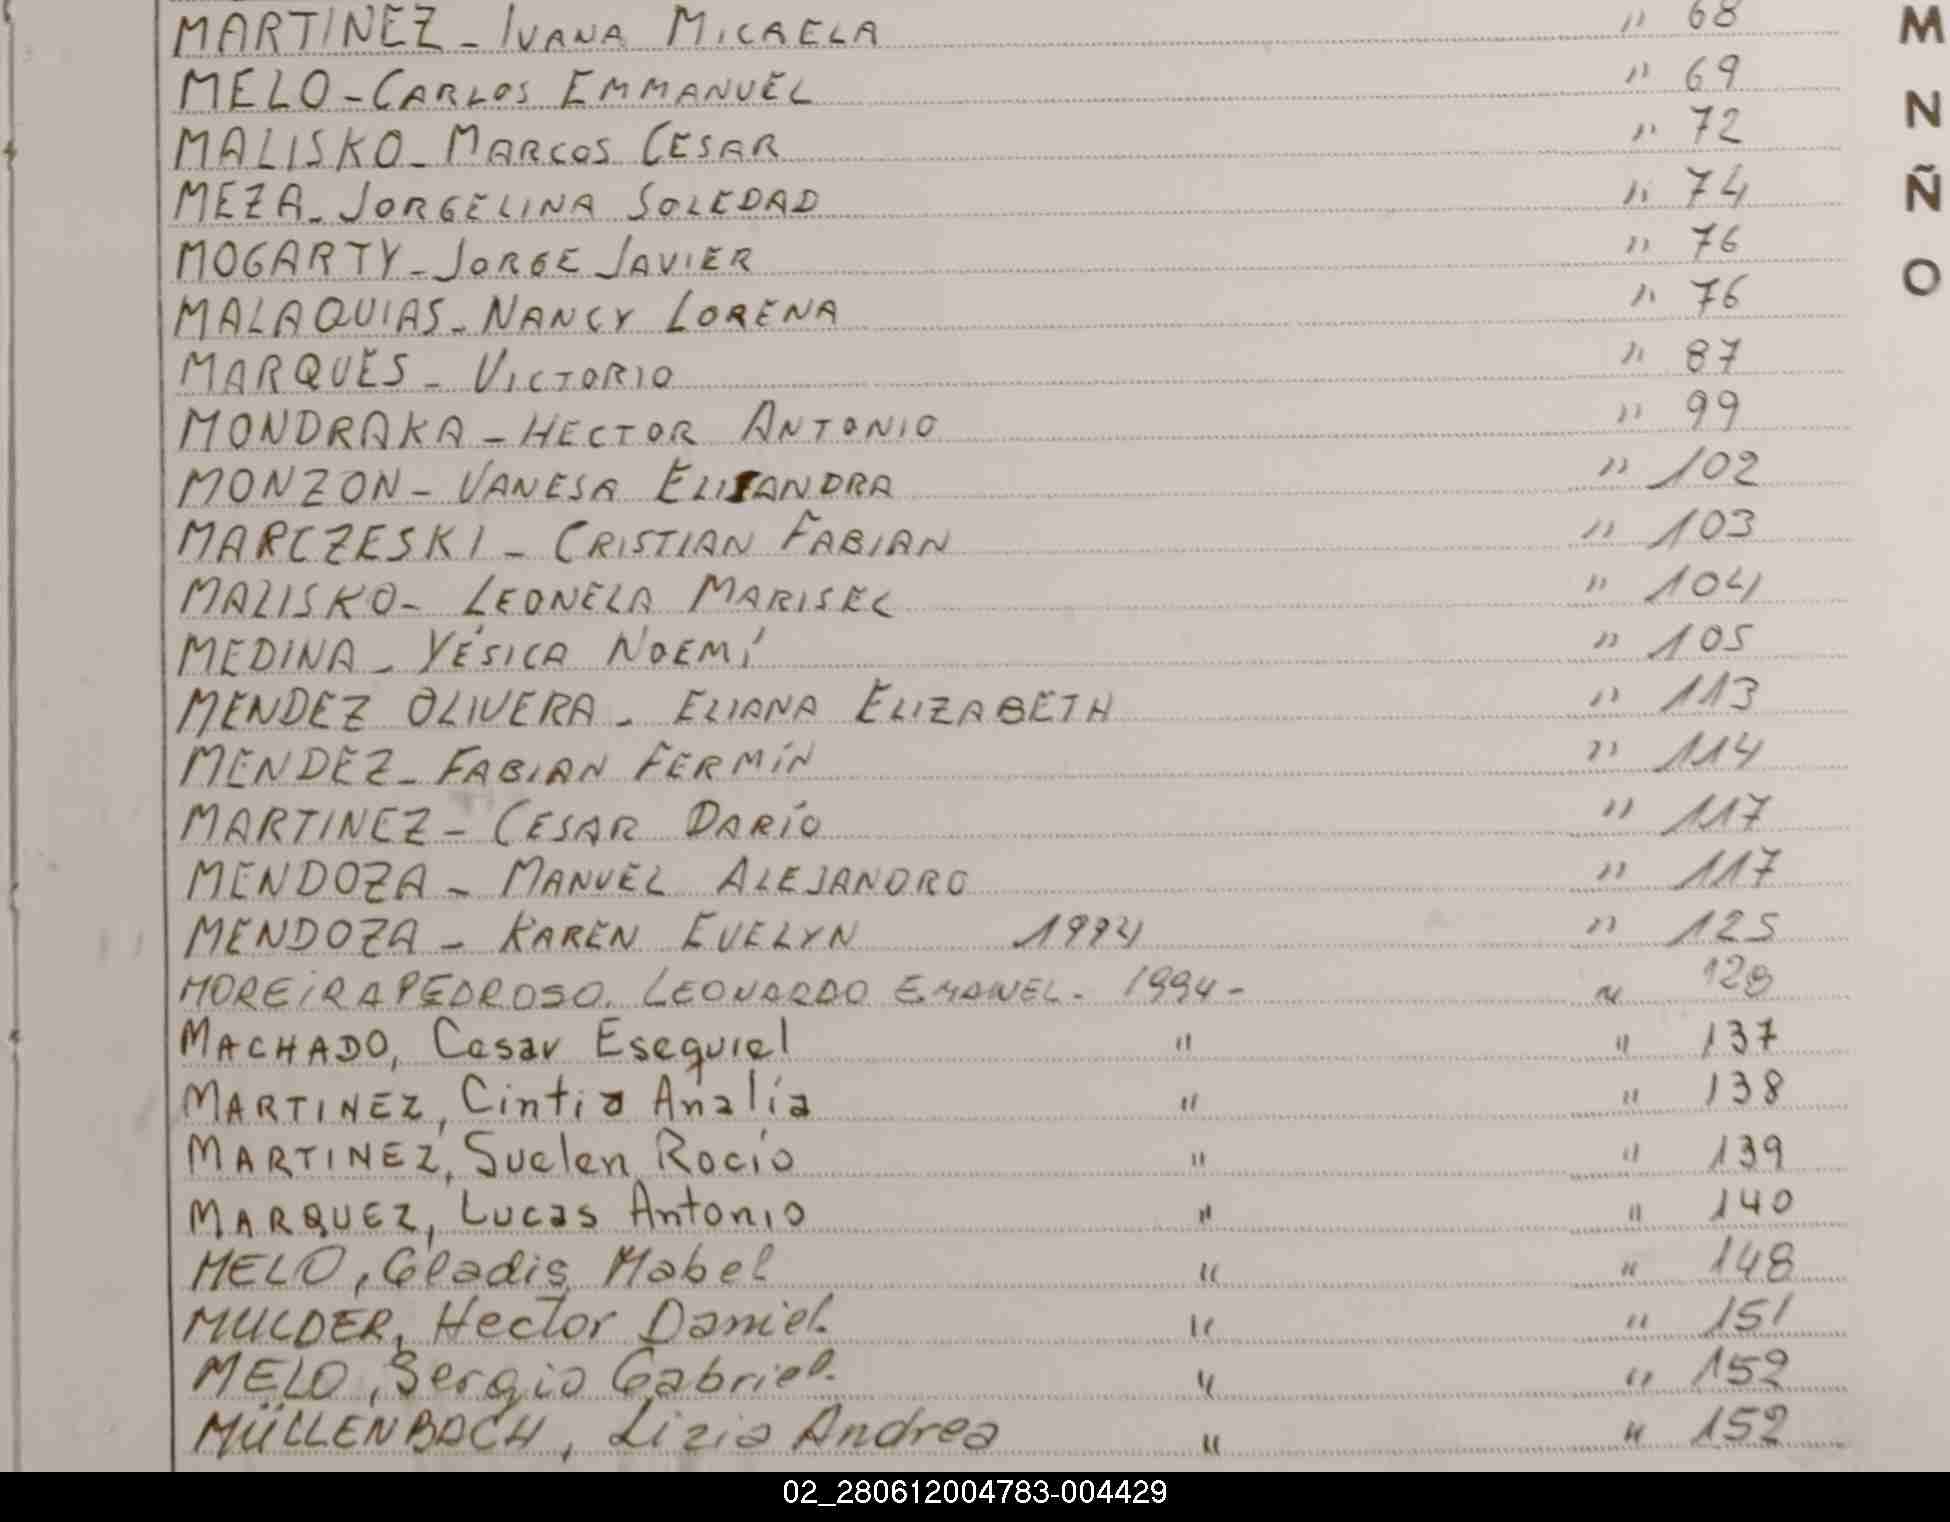 MARTINEZ - IVANA MICAELA " 68
MELO - CARLOS EMMANUEL " 69
MALISKO - MARCOS CESAR " 72
MEZA - JORGELINA SOLEDAD " 74
MOGARTY - JORGE JAVIER " 76
MALAQUIAS - NANCY LORENA " 76
MARQUES - VICTORIO " 87
MONDRAKA - HECTOR ANTONIO " 99
MONZON - VANESA ELISANDRA " 102
MARCZESKI - CRISTIAN FABIAN " 103
MALISKO - LEONELA MARISEL " 104
MEDINA - YÉSICA NOEMÍ " 105
MENDEZ OLIVERA - ELIANA ELIZABETH " 113
MENDEZ - FABIAN FERMÍN " 114
MARTINEZ - CESAR DARÍO " 117
MENDOZA - MANUEL ALEJANDRO " 117
MENDOZA - KAREN EVELYN 1994 " 125
MOREIRA PEDROSO. LEONARDO EMANUEL - 1994 - " 128
MACHADO, Cesar Esequiel " " 137
MARTINEZ, Cintia Analía " " 138
MARTINEZ, Suelen Rocío " " 139
MARQUEZ, Lucas Antonio " " 140
MELO, Gladis Mabel " " 148
MULDER, Hector Daniel. " " 151
MELO, Sergio Gabriel. " " 152
MÜLLENBACH, Lizia Andrea " " 152
M
N
Ñ
O
02_280612004783-004429